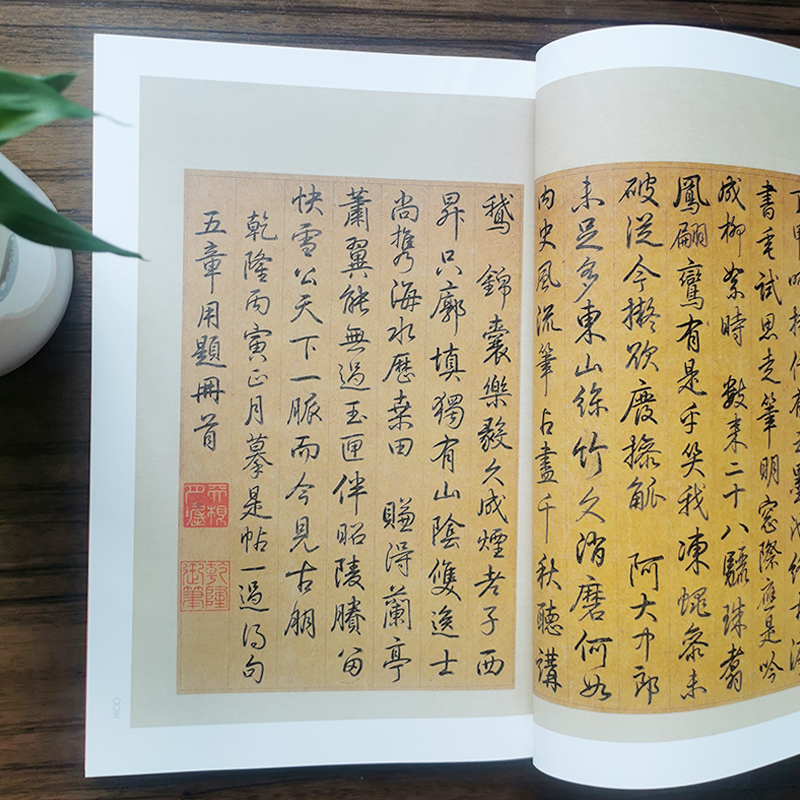 書毫試思走筆明窓際應是吟
成柳絮時 數來二十八驪珠翥
鳳翩鸞有是乎笑我凍蠅參未
破從今擬欲廢操觚 阿大中郎
未足多東山絲竹久消磨何如
内史風流筆占盡千秋聽講
鵝 錦囊樂毅久成煙老子西
昇只廓填獨有山陰雙逸士
尚攜海水歷桑田 賺得蘭亭
蕭翼能無過玉匣伴昭陵賸留
快雪公天下一脈而今見古朋
乾隆丙寅正月摹是帖一過得句
五章用題冊首
乾隆御筆